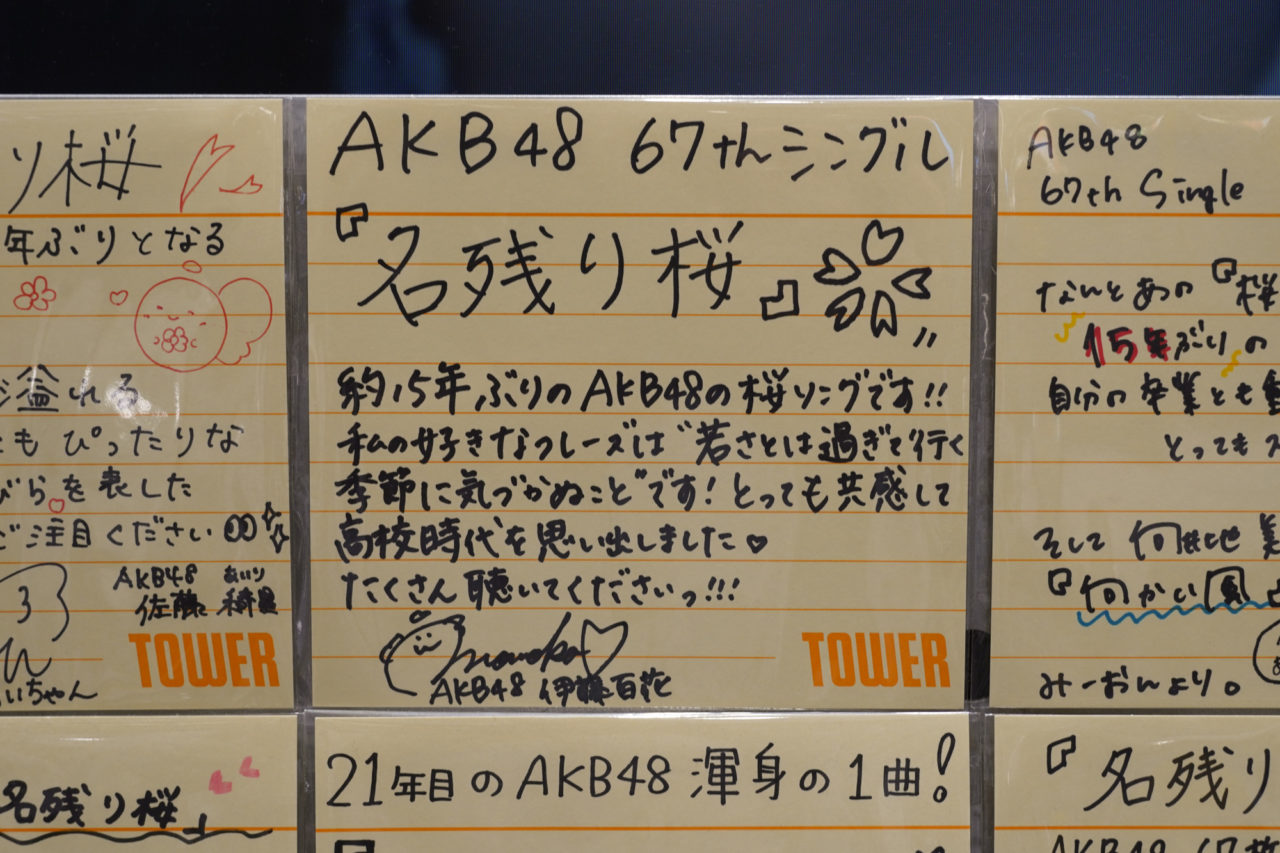 り桜
年ぶりとなる
溢れる
もぴったりな
びらを表した
ご注目ください
AKB48 あいり
佐藤 綺星
いちゃん
TOWER
AKB48 67thシングル
『名残り桜』
約15年ぶりのAKB48の桜ソングです!!
私の好きなフレーズは"若さとは過ぎて行く
季節に気づかぬこと"です!とっても共感して
高校時代を思い出しました♡
たくさん聴いてくださいっ!!!
Momoka♡
AKB48 伊藤百花
TOWER
AKB48
67th Single
なんとあの『桜
15年ぶりの
自分の卒業とも重
とっても
そして 何
『何かい
みーおんより。
名残り桜」
21年目のAKB48 渾身の1曲!
『名残り
AKB48 67